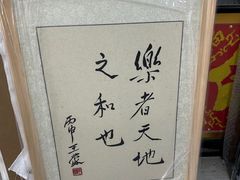 樂者天地
之和也
丙申王森